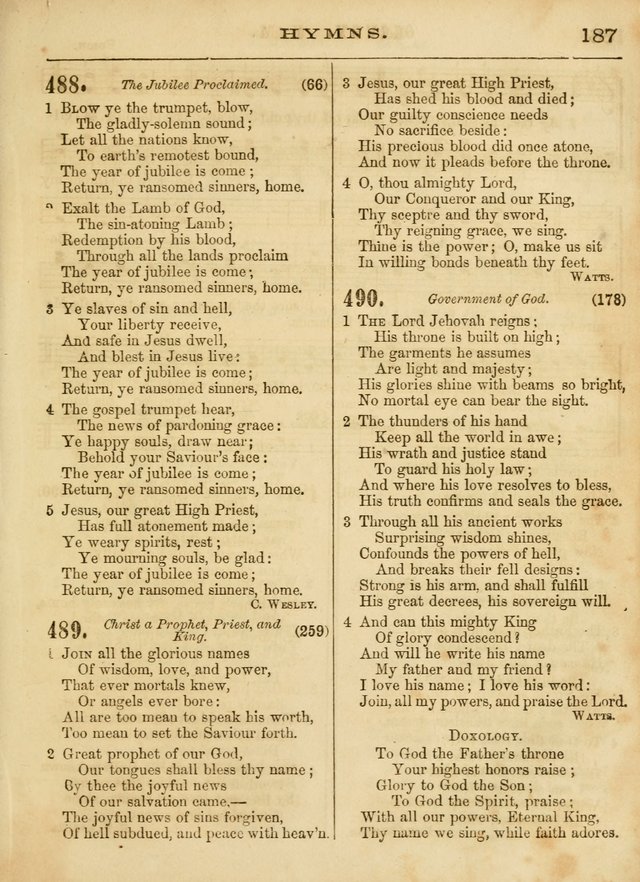 HYMNS.
187
488. The Jubilee Proclaimed. (66)
1 BLOW ye the trumpet, blow,
The gladly-solemn sound;
Let all the nations know,
To earth's remotest bound,
The year of jubilee is come;
Return, ye ransomed sinners, home.
Exalt the Lamb of God,
The sin-atoning Lamb;
Redemption by his blood,
Through all the lands proclaim
The year of jubilee is come;
Return, ye ransomed sinners, home.
3 Ye slaves of sin and hell,
Your liberty receive,
And safe in Jesus dwell,
And blest in Jesus live:
The year of jubilee is come;
Return, ye ransomed sinners, home.
4 The gospel trumpet hear,
The news of pardoning grace:
Ye happy souls, draw near;
Behold your Saviour's face:
The year of jubilee is come;
Return, ye ransomed sinners, home.
5 Jesus, our great High Priest,
Has full atonement made;
Ye weary spirits, rest;
Ye mourning souls, be glad:
The year of jubilee is come;
Return, ye ransomed sinners, home.
C. WESLEY.
489. Christ a Prophet, Priest, and
King. (259)
1 JOIN all the glorious names
Of wisdom, love, and power,
That ever mortals knew,
Or angels ever bore:
All are too mean to speak his worth,
Too mean to set the Saviour forth.
2 Great prophet of our God,
Our tongues shall bless thy name;
By thee the joyful news
Of our salvation came.—
The joyful news of sins forgiven,
Of hell subdued, and peace with heav'n.
3 Jesus, our great High Priest,
Has shed his blood and died;
Our guilty conscience needs
No sacrifice beside:
His precious blood did once atone,
And now it pleads before the throne.
4 O, thou almighty Lord,
Our Conqueror and our King,
Thy sceptre and thy sword,
Thy reigning grace, we sing.
Thine is the power; O, make us sit
In willing bonds beneath thy feet.
WATTS.
490. Government of God. (178)
1 THE Lord Jehovah reigns;
His throne is built on high;
The garments he assumes
Are light and majesty;
His glories shine with beams so bright,
No mortal eye can bear the sight.
2 The thunders of his hand
Keep all the world in awe;
His wrath and justice stand
To guard his holy law;
And where his love resolves to bless,
His truth confirms and seals the grace.
3 Through all his ancient works
Surprising wisdom shines,
Confounds the powers of hell,
And breaks their fell designs:
Strong is his arm, and shall fulfill
His great decrees, his sovereign will.
4 And can this mighty King
Of glory condescend?
And will he write his name
My father and my friend?
I love his name; I love his word:
Join, all my powers, and praise the Lord.
WATTS.
DOXOLOGY.
To God the Father's throne
Your highest honors raise;
Glory to God the Son;
To God the Spirit, praise;
With all our powers, Eternal King,
Thy name we sing, while faith adores.